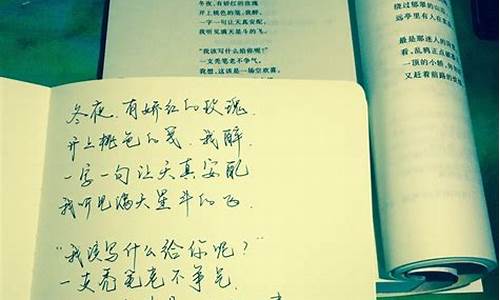 冬夜，有娇红的玫瑰
开上桃色的笺，我醉，
一字一句让天真安配，
我听见满天星斗的飞。
“我该写什么给你呢？”
一支秃笔老不争气。
我想，这该是一场空欢喜。
绕过郁翠的山
远亭里有人在
最是那迷人的
看，乱鸦正点
一顶的小轿，
又赶着前路的
冬夜，有娇红的玫瑰，
开上桃色的笺，我醉，
一字一句让天真安配
我听见满天星斗的飞
“我该写什么给你呢？”
一支秃笔老不争气，